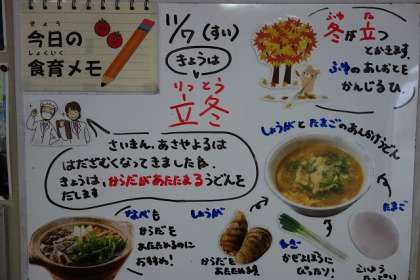 きょう
今日の
しょくいく
食育メモ
11/7(すい)
きょうは
りっとう
立冬
ふゆ た
冬が立つ
とかきます
ふゆのあしおとを
かんじるひ。
さいきん、あさやよるは
はだざむくなってきましたね。
きょうは、からだがあたたまるうどんを
だします
しょうがとたまごのあんかけうどん
なべも
からだを
あたためるのに
おすすめ!
しょうが
からだを
あたためる
ねぎ
かぜよぼうに
ぴったり!
たまご